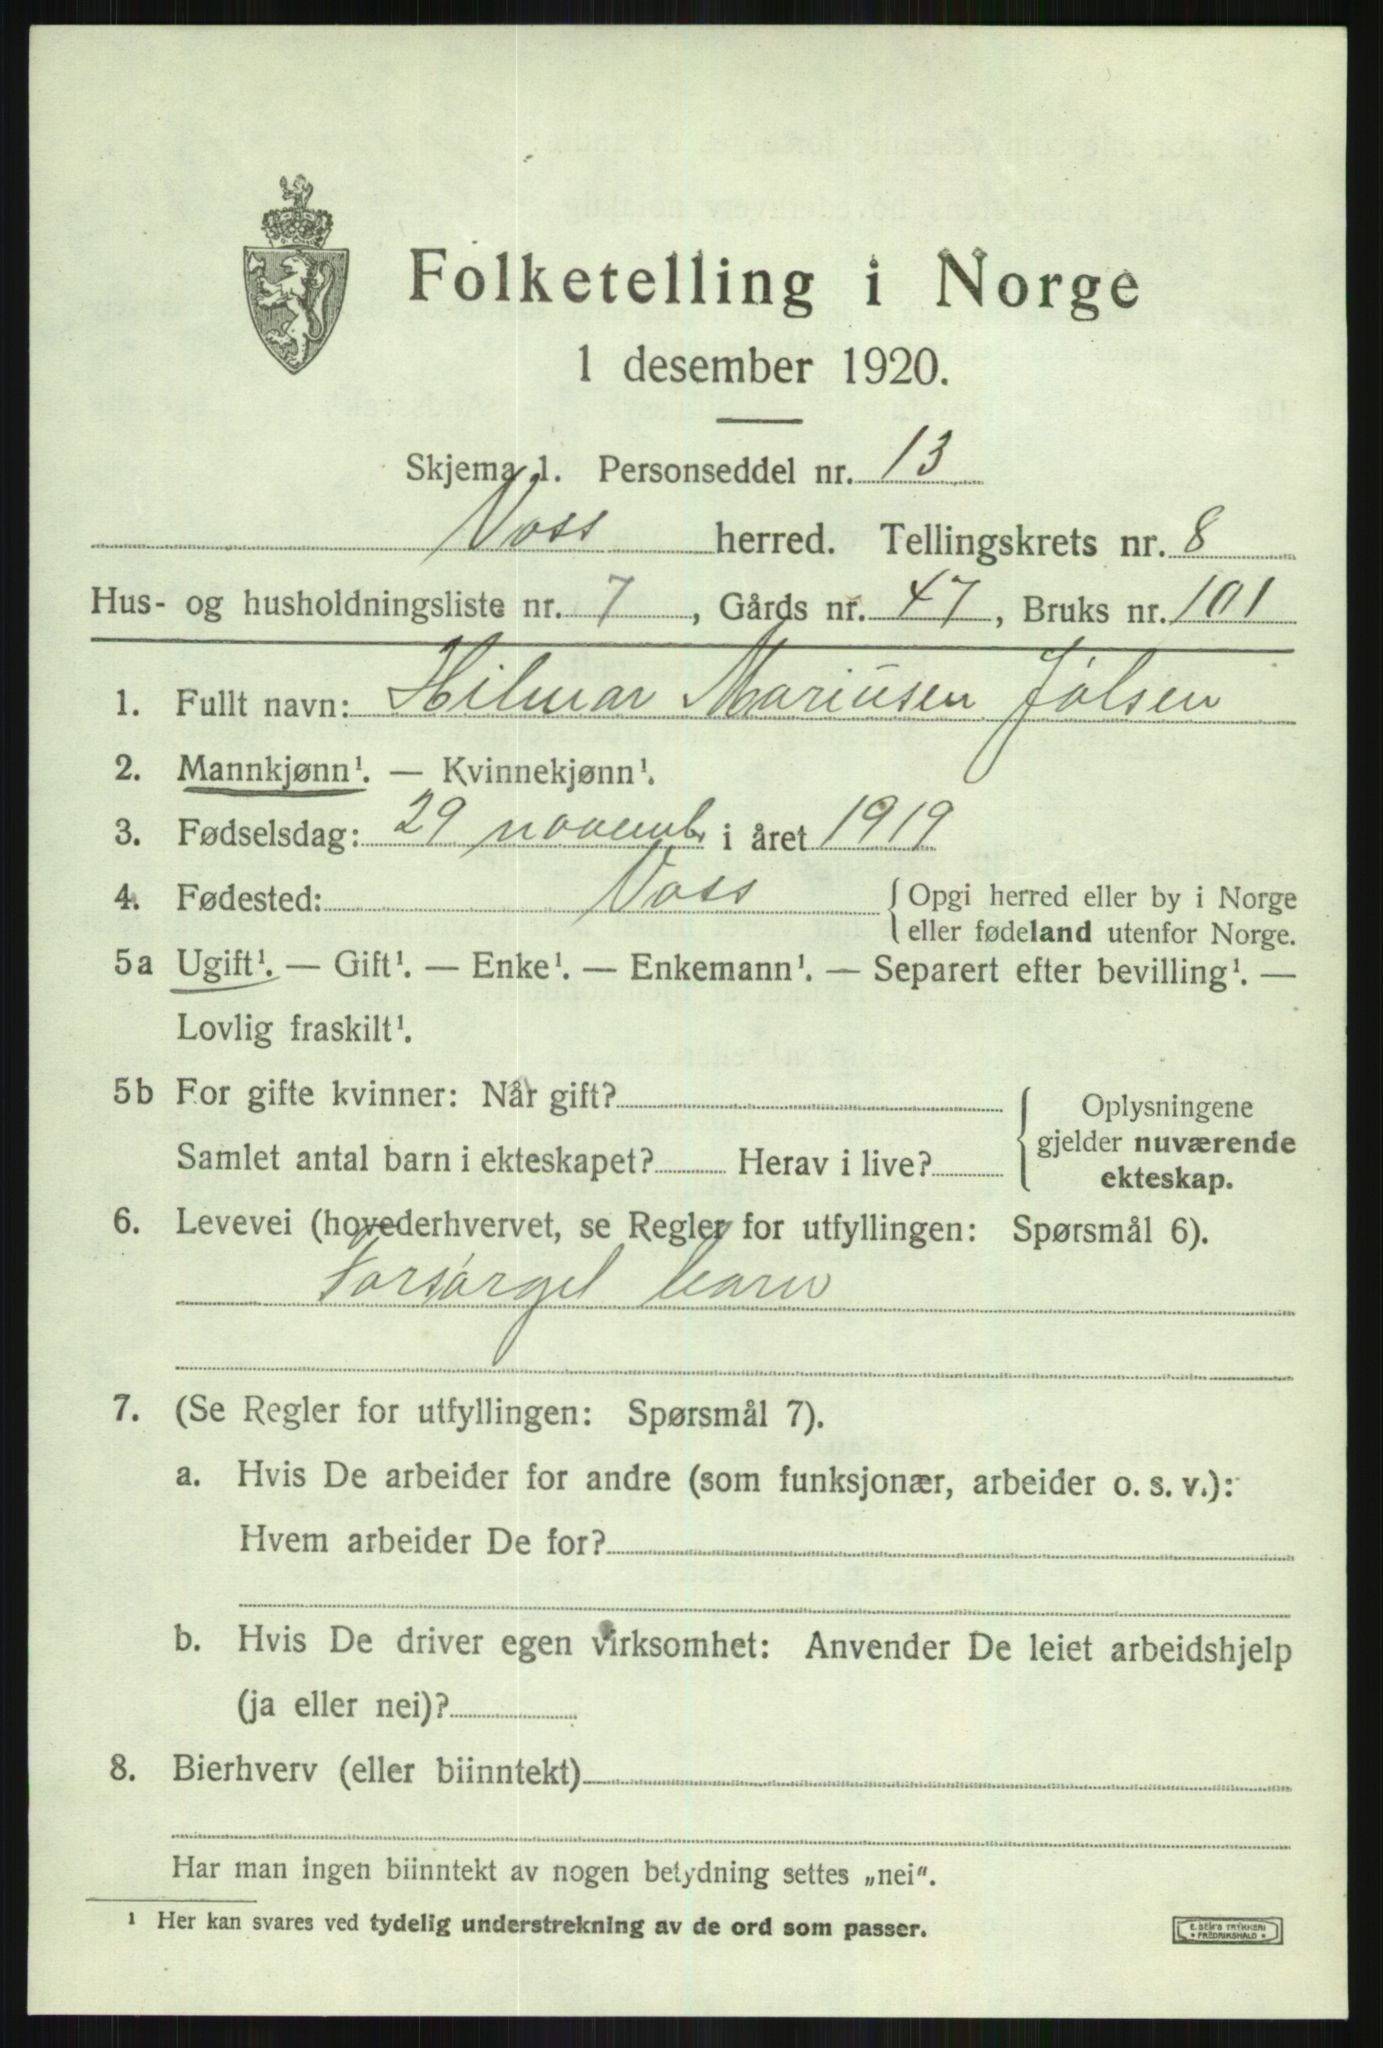 Folketelling i Norge
1 desember 1920.
Skjema 1. Personseddel nr. 13
Voss herred. Tellingskrets nr. 8
Hus- og husholdningsliste nr. 7, Gårds nr. 47, Bruks nr. 101
1. Fullt navn: Hilmar Mariusen Jølsen
2. Mannkjønn¹. — Kvinnekjønn¹.
3. Fødselsdag: 29 novembr i året 1919
4. Fødested: Voss { Opgi herred eller by i Norge
eller fødeland utenfor Norge.
5a Ugift¹. — Gift¹. — Enke¹. — Enkemann¹. — Separert efter bevilling¹. —
Lovlig fraskilt¹.
5b For gifte kvinner: Når gift? { Oplysningene
gjelder nuværende
Samlet antal barn i ekteskapet? Herav i live?
ekteskap.
6. Levevei (hovederhvervet, se Regler for utfyllingen: Spørsmål 6).
Forsørget barn
7. (Se Regler for utfyllingen: Spørsmål 7).
a. Hvis De arbeider for andre (som funksjonær, arbeider o. s. v.):
Hvem arbeider De for?
b. Hvis De driver egen virksomhet: Anvender De leiet arbeidshjelp
(ja eller nei)?
8. Bierhverv (eller biinntekt)
Har man ingen biinntekt av nogen betydning settes „nei“.
¹ Her kan svares ved tydelig understrekning av de ord som passer.
E. SEM'S TRYKKERI
• FREDRIKSHALD •